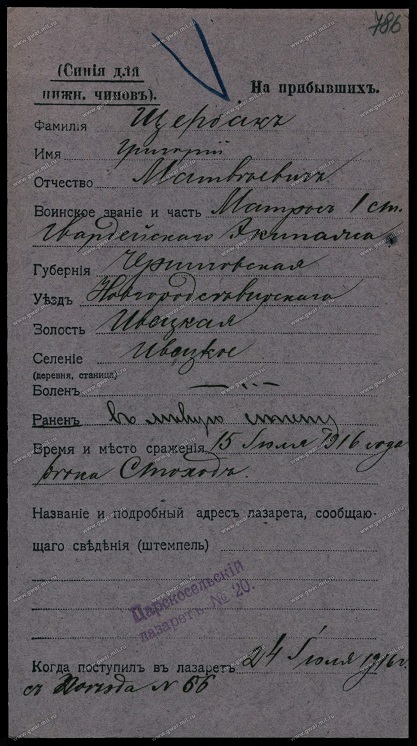 786
(Синія для
нижн. чиновъ).
На прибывшихъ.
Фамилія Щербакъ
Имя Григорій
Отчество Матвѣевичъ
Воинское званіе и часть Матросъ 1 ст.
Гвардейскаго Экипажа
Губернія Черниговская
Уѣздъ Новгородсѣверскаго
Золость Ивоцкая
Селеніе Ивоцкое
(деревня, станица)
Боленъ — „ —
Раненъ въ лѣвую
Время и мѣсто сраженія 15 Іюля 1916 года
Стоходъ.
Названіе и подробный адресъ лазарета, сообщаю-
щаго свѣдѣнія (штемпель)
Царскосельскій
лазаретъ № 20.
Когда поступилъ въ лазаретъ 24 Іюля 1916 г.
съ поѣзда № 66
www.gwar.mil.ru